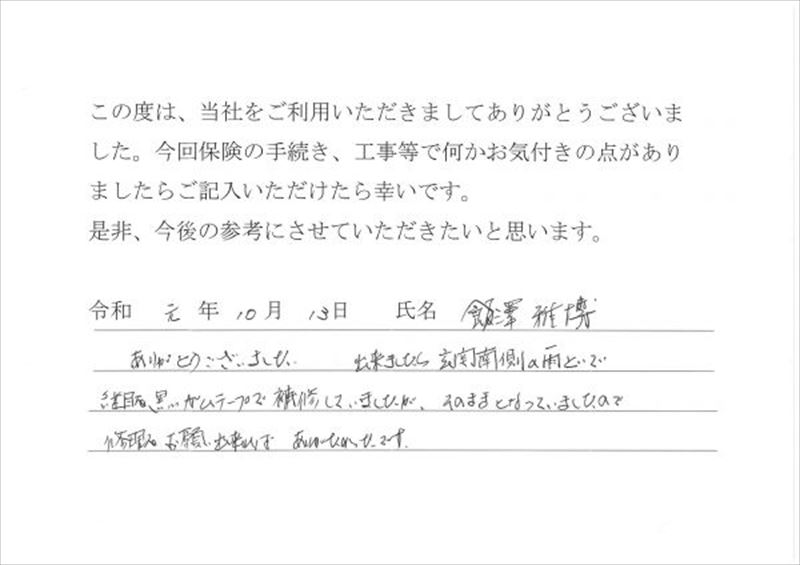 この度は、当社をご利用いただきましてありがとうございま
した。今回保険の手続き、工事等で何かお気付きの点があり
ましたらご記入いただけたら幸いです。
是非、今後の参考にさせていただきたいと思います。
令和 元 年 10 月 13 日 氏名 飯澤 雅博
ありがとうございました。 出来ましたら玄関南側の雨どいで
黒いガムテープで補修していましたが、そのままとなっていましたので
修理をお願い出来れば ありがたかったです。